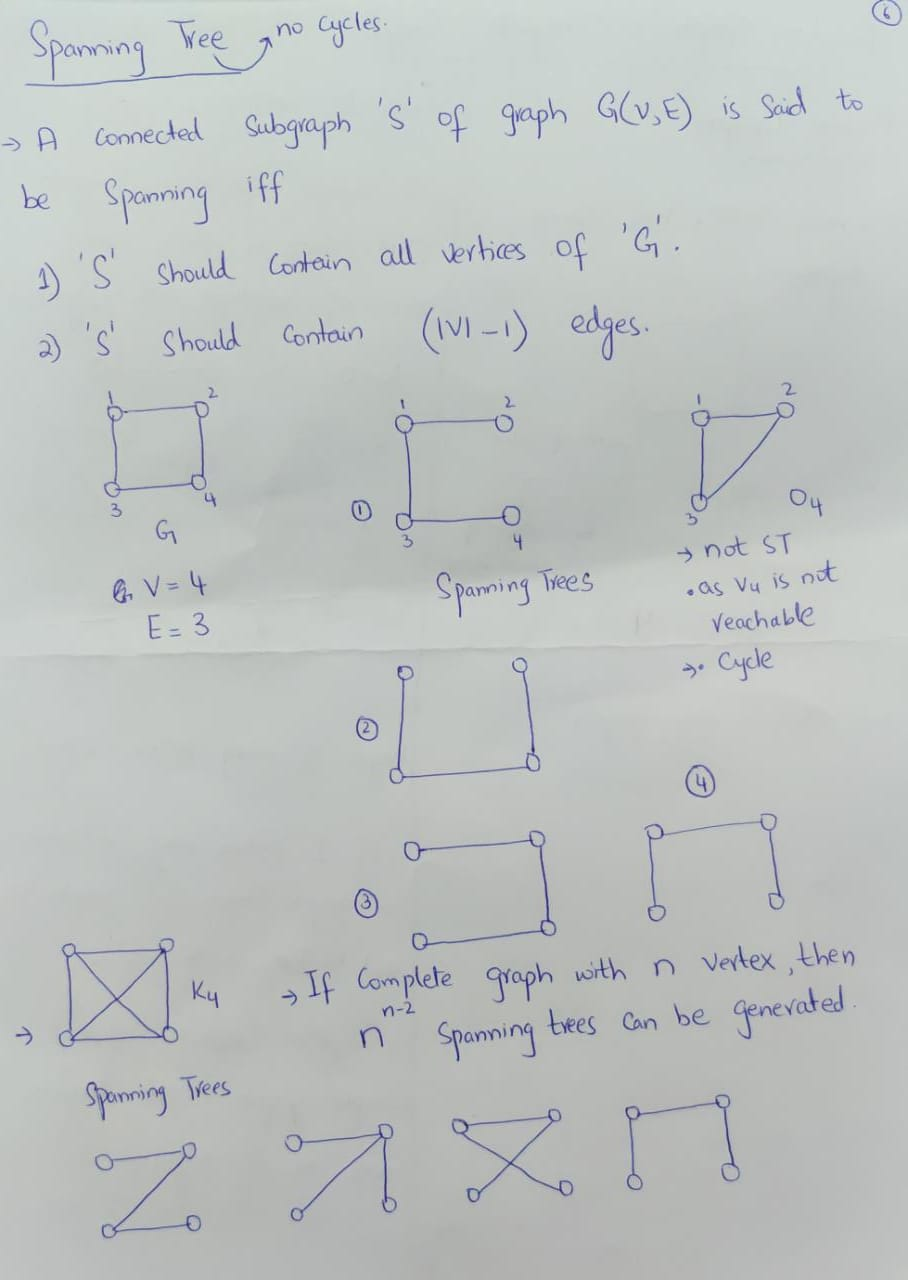 6
Spanning Tree no cycles.
→ A connected Subgraph 'S' of graph G(V,E) is said to
be Spanning iff
1) 'S' should Contain all vertices of 'G'.
2) 'S' Should Contain (|V|-1) edges.
1 2
3 4
G
V = 4
E = 3
①
1 2
3 4
Spanning Trees
1 2
3 4
→ not ST
• as V4 is not
reachable
→• Cycle
②
④
③
→ K4
→ If Complete graph with n vertex, then
n^{n-2} Spanning trees can be generated.
Spanning Trees